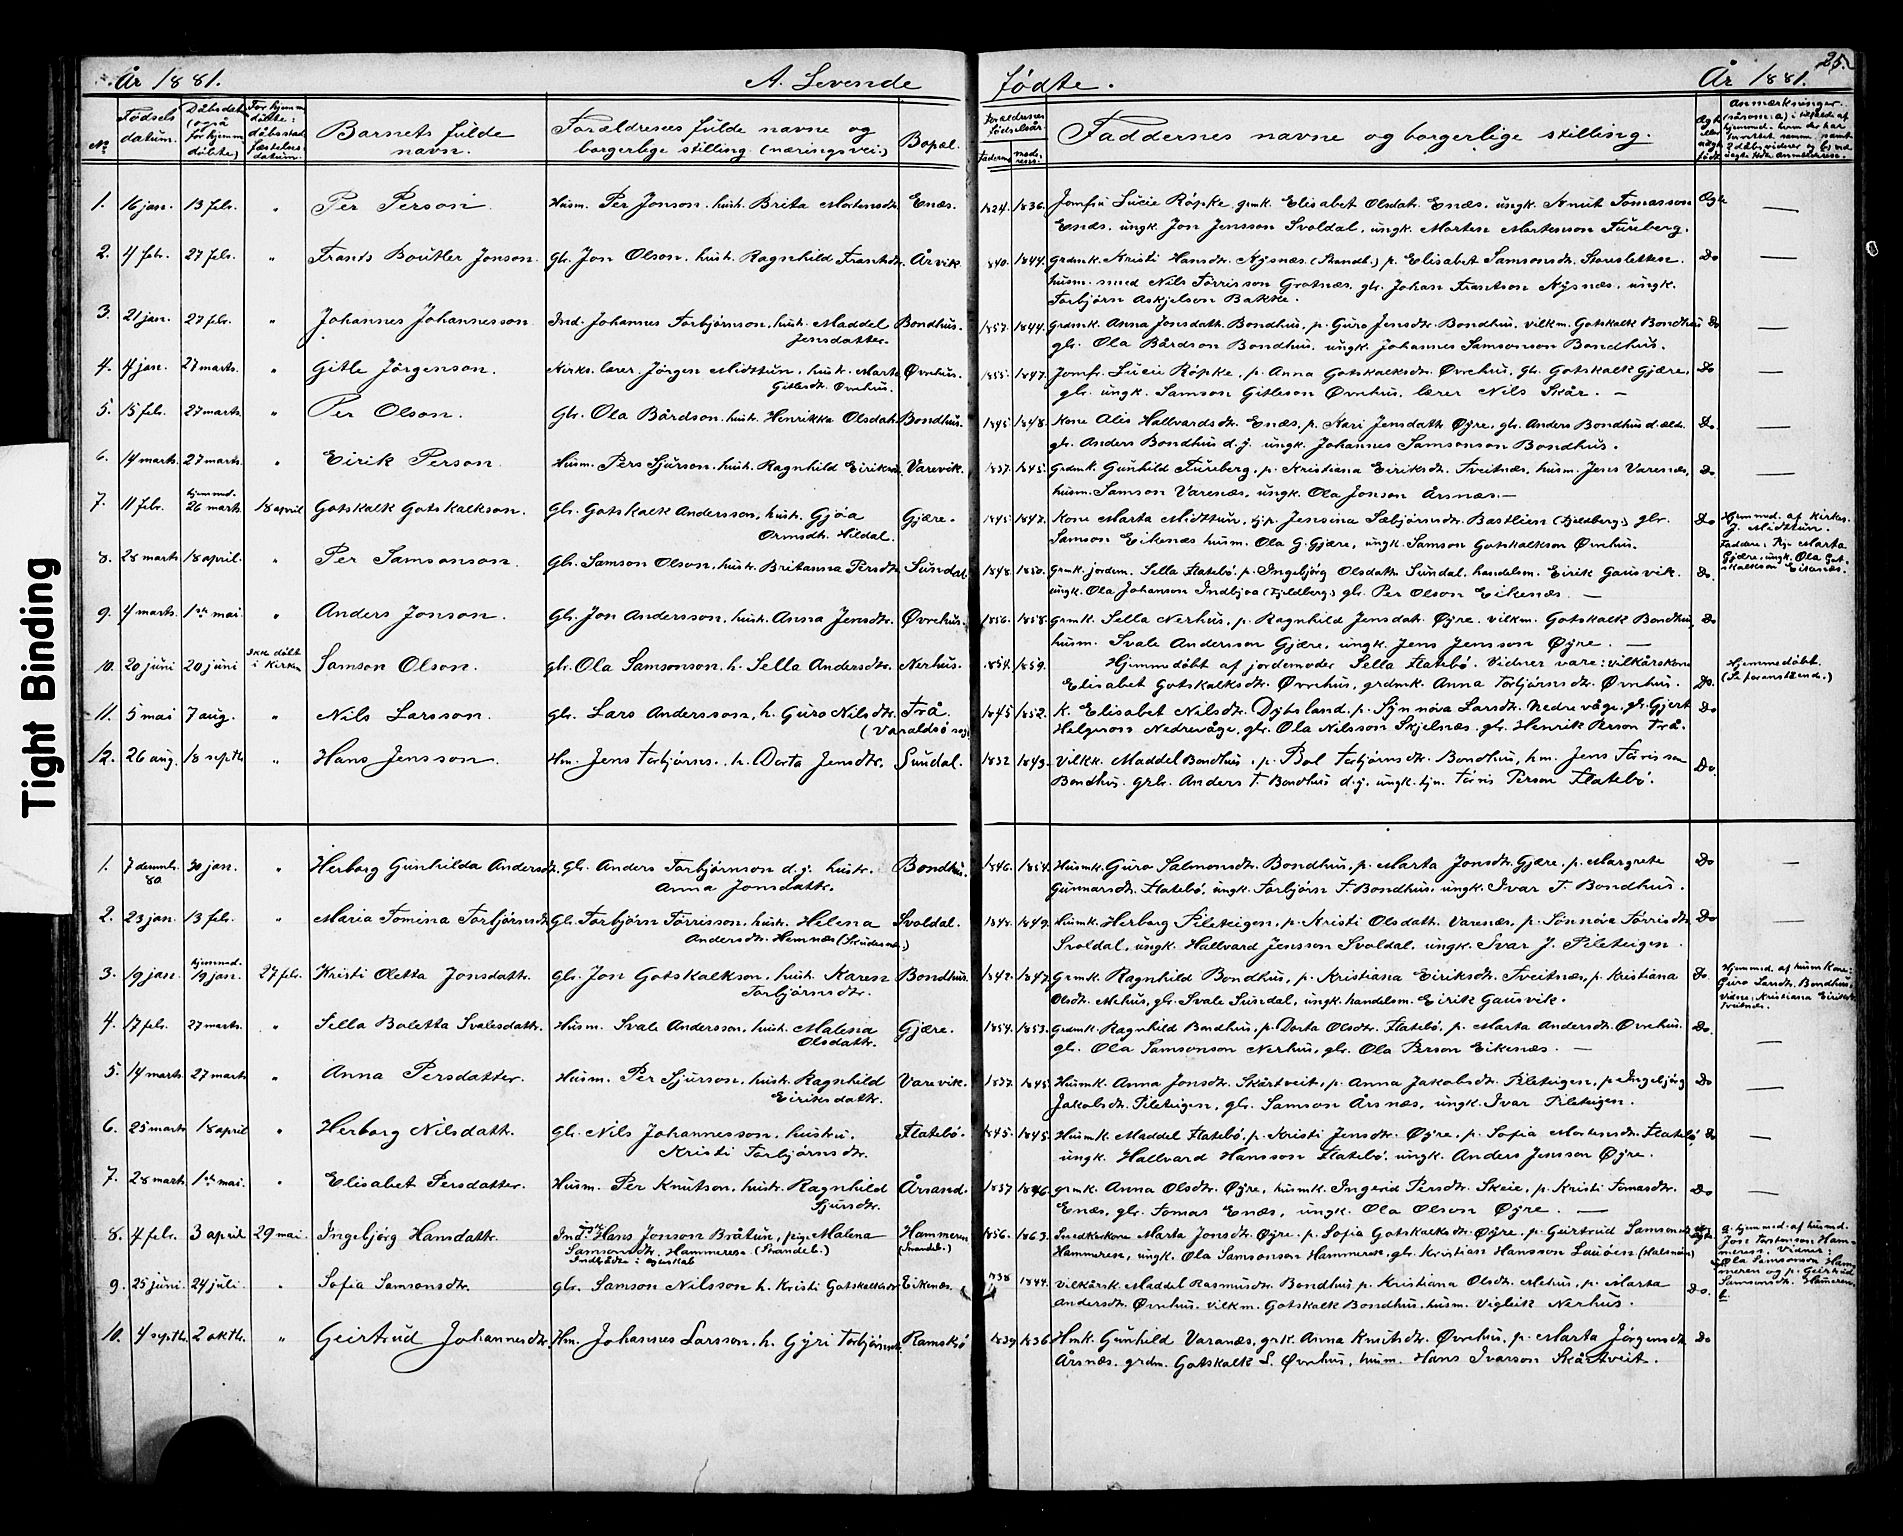 År 1881. A. Levende fødte. År 1881. 25.
Tight Binding
No Fødsels datum. Dåbsdat. (også for hjemmedøbte) For hjemmedøbte: dåbsstad- fæstelses datum. Barnets fulde navn. Forældrenes fulde navne og borgerlige stilling (næringsvei.) Bopæl. Forældrenes fødselsår faderens moderens Faddernes navne og borgerlige stilling. Ægte eller uægte født Anmærkninger.
1. 16 jan. 13 febr. " Per Person. Husm. Per Jonson, hust. Brita Mortensdtr. Enæs. 1824. 1836. Jomfru Lucie Röpke, grmk. Elisabet Olsdatr. Enæs, ungk. Knut Tomasson Ægte —
Enæs, ungk. Jon Jensson Svoldal, ungk. Morten Mortenson Fureberg.
2. 4 febr. 27 febr. " Frants Boutler Jonson. Gbr. Jon Olson, hust. Ragnhild Frantsdtr. Årvik. 1840. 1844. Grdmk. Kristi Hansdtr. Nysnæs (Strandb.) p. Elisabet Samsonsdtr. Storesletten. Do —
husm. smed Nils Tørrisson Grotnæs, gbr. Johan Frantson Nysnæs, ungk.
Torbjørn Askjelson Bakke.
3. 21 jan. 27 febr. " Johannes Johannesson. Ind. Johannes Torbjørnson, hust. Maddel Bondhus. 1857. 1844. Grdmk. Anna Jonsdatr. Bondhus, p. Guro Jensdtr. Bondhus, vilkm. Gotskalk Bondhus Do —
Jensdatter. gbr. Ola Bårdson Bondhus, ungk. Johannes Samsonson Bondhus.
4. 4 jan. 27 marts. " Gitle Jørgenson. Kirks. lærer Jörgen Midttun, hust. Marta Øvrehus. 1855. 1847. Jomfr. Lucie Röpke, p. Anna Gotskalksdtr. Øvrehus, gbr. Gotskalk Gjære, Do —
Gitlesdtr. Øvrehus. gbr. ungk. Samson Gitleson Øvrehus, lærer Nils Skår. —
5. 15 febr. 27 marts " Per Olson. Gbr. Ola Bårdson, hust. Henrikka Olsdatr. Bondhus. 1845. 1848. Kone Alis Hallvardsdtr. Enæs, p. Kari Jensdatr. Øyre, gbr. Anders Bondhus d. æld. Do —
gbr. Anders Bondhus d. y. ungk. Johannes Samsonson Bondhus.
6. 14 marts. 27 marts. " Eirik Person. Husm. Per Sjurson, hust. Ragnhild Eiriksd. Varevik. 1837. 1845. Grdmk. Gunhild Fureberg, p. Kristiana Eiriksdtr. Tveitnæs, husm. Jens Varenæs, Do —
husm. Samson Varenæs, ungk. Ola Jonson Årsnæs. —
7. 11 febr. hjemmed. 26 marts. 18 april Gotskalk Gotskalkson. Gbr. Gotskalk Andersson, hust. Gjøa Gjære. 1845. 1847. Kone Marta Midttun, tjp. Jensina Sæbjørnsdtr. Bastlien (Fjeldberg) gbr. Do Hjemmed. af kirkes. J. Midttun.
Ormsdtr. Hildal. Samson Eikenæs husm. Ola G. Gjære, ungk. Samson Gotskalkson Øvrehus. Faddere: Marta Gjære, ungk. Ola Gotskalkson Eikenæs.
8. 28 marts. 18 april. " Per Samsonson. Gbr. Samson Olson, hust. Britanna Persdtr. Sundal. 1848. 1850. Grmk. jordem. Sella Flatebø, p. Ingebjørg Olsdatr. Sundal, handelsm. Eirik Gausvik. Do.
ungk. Ola Johanson Indbjoa (Fjeldberg) gbr. Per Olson Eikenæs. —
9. 4 marts. 1ste mai. " Anders Jonson. Gbr. Jon Andersson, hust. Anna Jensdtr. Øvrehus. 1856. 1858. Grmk. Sella Nerhus, p. Ragnhild Jensdatr. Øyre, vilkm. Gotskalk Bondhus, Do —
husm. Svale Andersson Gjære, ungk. Jens Jensson Øyre. —
10. 20 juni 20 juni Ikke døbt i kirken Samson Olson. gbr. Ola Samsonson, h. Sella Andersdtr. Nerhus. 1854. 1859. Hjemmedøbt af jordemoder Sella Flatebø. Vidner vare: vilkårskone Hjemmedøbt.
Elisabet Gotskalksdtr. Øvrehus, grdmk. Anna Torbjørnsdtr. Øvrehus. Do. (Se foranstående.)
11. 5 mai 7 aug. " Nils Larsson. gbr. Lars Andersson, h. Guro Nilsdtr. Trå. 1845 1852. K. Elisabet Nilsdtr. Dybsland, p. Synnøva Larsdtr. Nedre våge, gbr. Gjert Do —
(Varaldsø sogn) Helgeson Nedrevåge, gbr. Ola Nilsson Skjelnæs, gbr. Henrik Person Trå.
12. 26 aug. 18 septb. " Hans Jensson. Hm. Jens Torbjørns. h. Dorta Jensdtr. Sundal. 1832 1843. Vilkk. Maddel Bondhus, p. Bol Torbjørnsdtr. Bondhus, hm. Jens Tørisson Do.
Bondhus, grbr. Anders T. Bondhus d. y. ungk. tjn. Tøris Person Flatebø.
1. 7 decembr. 80 30 jan. " Herborg Gunhilda Andersdtr. Gbr. Anders Torbjørnson d. y. hustr. Bondhus. 1846. 1854. Husmk. Guro Salmonsdtr. Bondhus, p. Marta Jonsdtr. Gjære, p. Margrete Do —
Anna Jonsdattr. Gunnarsdtr. Flatebø, ungk. Torbjørn T. Bondhus, ungk. Ivar T. Bondhus.
2. 23 jan. 13 febr. " Maria Tomina Torbjørnsdtr. Gbr. Torbjørn Tørrisson, hust. Helena Svoldal. 1848. 1849. Husmk. Herborg Pileteigen, p. Kristi Olsdatr. Varenæs, p. Sønnøva Tørrisdtr. Do —
Andersdtr. Hemnæs (Skudesnæs.) Svoldal, ungk. Hallvard Jensson Svoldal, ungk. Ivar J. Pileteigen.
3. 19 jan. hjemmed. 19 jan. 27 febr. Kristi Oletta Jonsdattr. Gbr. Jon Gotskalkson, hust. Karen Bondhus. 1842. 1847. Grmk. Ragnhild Bondhus, p. Kristiana Eiriksdtr. Tveitnæs, p. Kristiana Do. Hjemmed. af husm. kone: Guro Larsdtr. Bondhus.
Torbjørnsdtr. Olsdtr. Mehus, gbr. Svale Sundal, ungk. handelsm. Eirik Gausvik. Vidne: Kristiana Eiriksdtr. Tveitnæs.
4. 17 febr. 27 marts. " Sella Boletta Svalesdattr. Husm. Svale Andersson, hust. Malena Gjære. 1854. 1853. Grdmk. Ragnhild Bondhus, p. Dorta Olsdtr. Flatebø, p. Marta Andersdtr. Øvrehus. Do. —
Olsdattr. gbr. Ola Samsonson Nerhus, gbr. Ola Person Eikenæs. —
5. 14 marts. 27 marts " Anna Persdatter. Husm. Per Sjurson, hust. Ragnhild Varevik. 1837. 1845. Husmk. Anna Jonsdtr. Skårtveit, p. Anna Jakobsdtr. Pileteigen, p. Ingebjørg Do —
Eiriksdattr. Jakobsdtr. Pileteigen, gbr. Samson Årsnæs, ungk. Ivar Pileteigen.
6. 25 marts. 18 april " Herborg Nilsdattr. Gbr. Nils Johannesson, hustru. Flatebø. 1845. 1845. Husmk. Maddel Flatebø, p. Kristi Jensdtr. Øyre, p. Sofia Mortensdtr. Flatebø, Do —
Kristi Torbjørnsdtr. ungk. Hallvard Hansson Flatebø, ungk. Anders Jensson Øyre.
7. 28 marts. 1ste mai. " Elisabet Persdatter. Husm. Per Knutson, hust. Ragnhild Årsand. 1837 1846. grmk. Anna Olsdtr. Øyre, husmk. Ingerid Persdtr. Skeie, p. Kristi Tomasdtr. Do —
Sjursdtr. Enæs, gbr. Tomas Enæs, ungk. Ola Olson Øyre. —
8. 4 febr. 3 april 29 mai. Ingebjørg Hansdattr. Ind. Hans Jonson Bråtun, pige Malena Hammeren 1856. 1863. Snedkerkone Marta Jonsdtr. Øyre, p. Sofia Gotskalksdtr. Øyre, p. Geirtrud Samsonsdtr. uægte a. hjemmed. af husmd. Jon Torstenson Hammeren. Vidner:
Samsonsdtr. Hammeren (Strandeb.) (Strandeb.) Hammeren, ungk. Ola Samsonson Hammeren, gbr. Kristian Hansson Lauøen (Halsnøen) Ola Samsonson Hammeren og p. Geirtrud Samsonsdtr. Hammeren.
b.
9. 25 juni. 24 juli. " Sofia Samsonsdtr. gbr. Samson Nilsson h. Kristi Gotskalksdtr. Eikenæs. 1838 1844. Vilkårsk. Maddel Rasmusdtr. Bondhus p. Kristiana Olsdtr. Mehus, p. Marta Do.
Andersdtr. Øvrehus, vilkm. Gotskalk Bondhus, husm. Viglik Nerhus.
10. 4 septb. 2 oktb. " Geirtrud Johannesdtr. Hm. Johannes Larsson, h. Gyri Torbjørnsd. Ramskø 1839 1836 Hmk. Gunhild Varanæs, grk. Anna Knutsdtr. Øvrehus, p. Marta Jørgensdtr. Do
Årsnæs, grdm. Gotskalk S. Øvrehus, husm. Hans Ivarson Skårtveit.